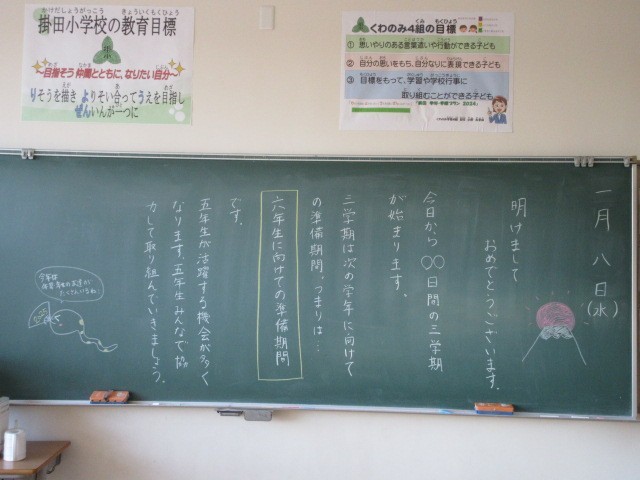 かけだしょうがっこう きょういくもくひょう
掛田小学校の教育目標
～目指そう 仲間とともに、なりたい自分～
りそうを描き よりそい合って うえを目指し
ぜんいんが一つに
くわのみ4組の目標
① 思いやりのある言葉遣いや行動ができる子ども
② 自分の思いをもち、自分なりに表現できる子ども
③ 目標をもって、学習や学校行事に
取り組むことができる子ども
一月八日(水)
明けまして
おめでとうございます。
今日から〇〇日間の三学期
が始まります。
三学期は次の学年に向けて
の準備期間。つまりは…
六年生に向けての準備期間
です。
五年生が活躍する機会が多く
なります。五年生みんなで協
力して取り組んでいきましょう。
今年は